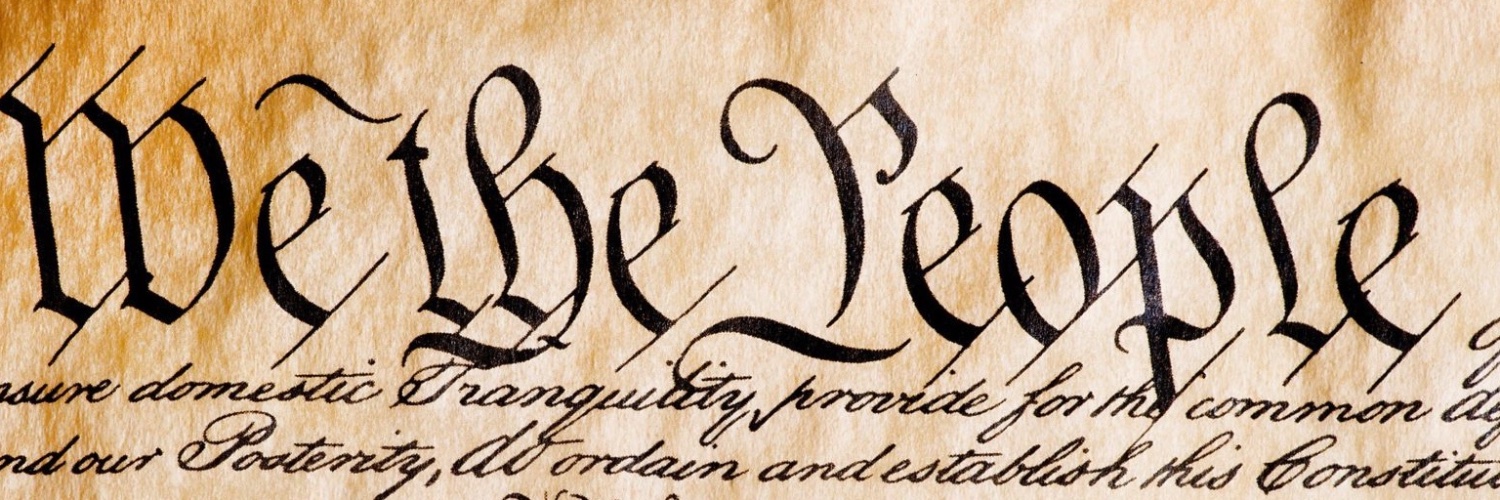 We the People
nsure domestic Tranquility, provide for the common de
nd our Posterity, do ordain and establish this Constitu